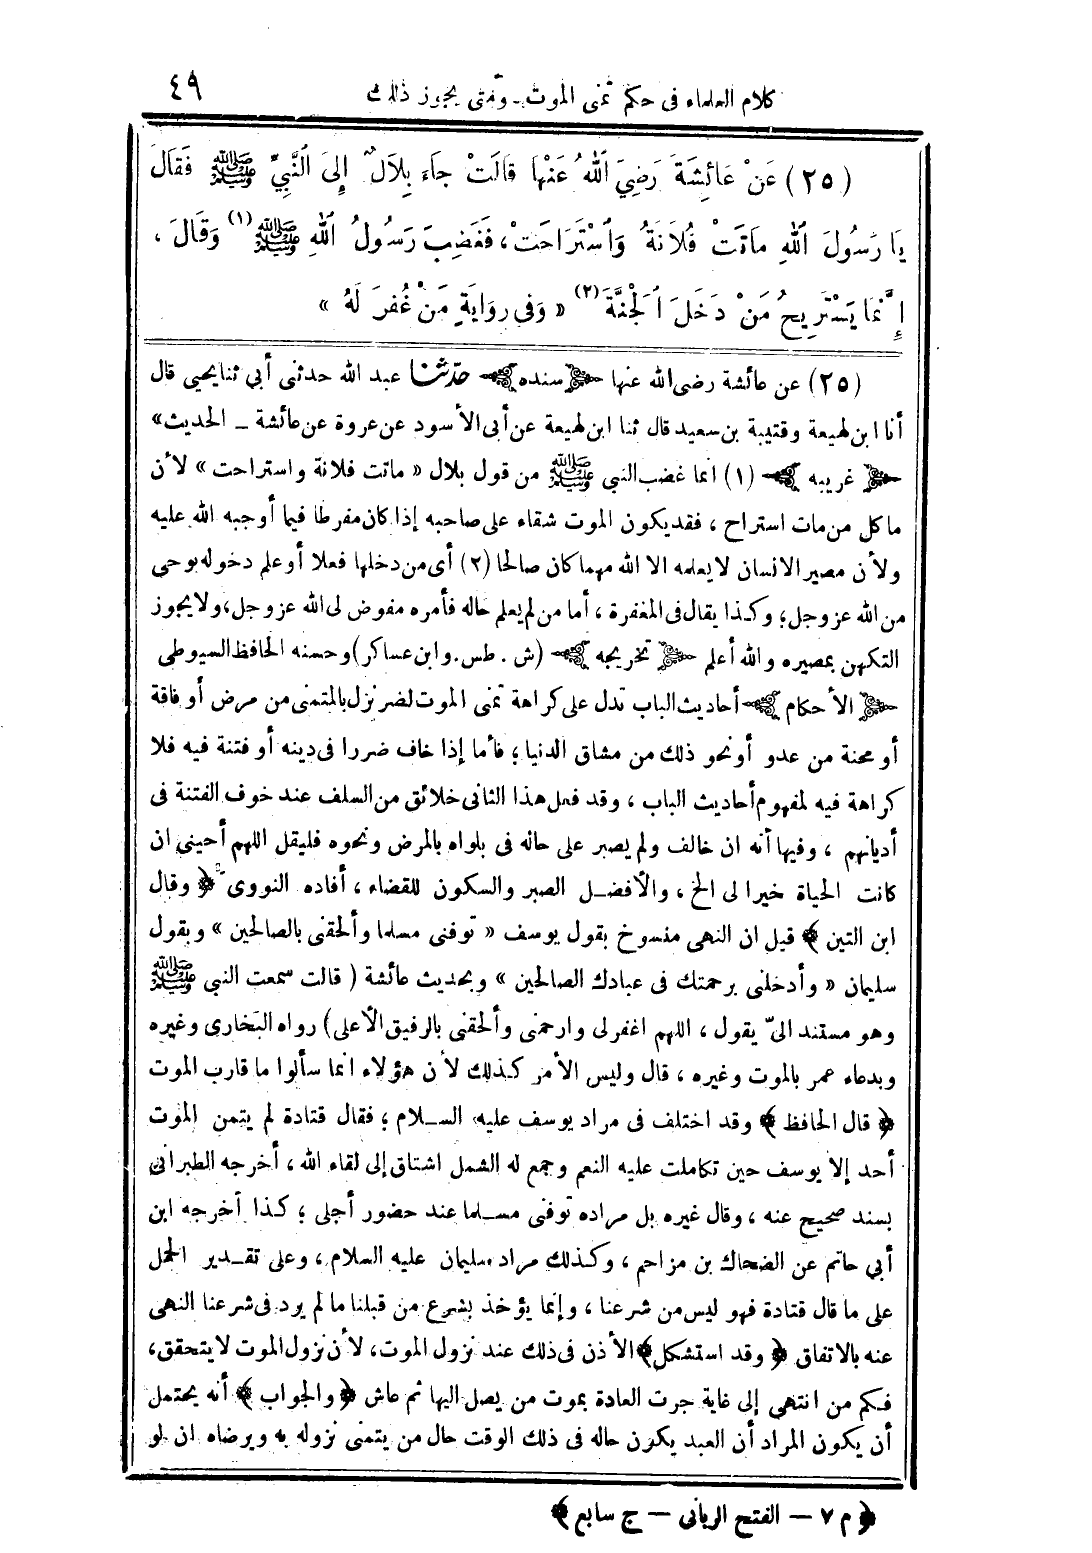 كلام العلماء فى حكم تمنى الموت - ومتى يجوز ذلك ٤٩
(٢٥) عَنْ عَائِشَةَ رَضِيَ اللهُ عَنْهَا قَالَتْ جَاءَ بِلَالٌ إِلىَ النَّبِيِّ ﷺ فَقَالَ
يَا رَسُولَ اللهِ مَاتَتْ فُلَانَةُ وَاسْتَرَاحَتْ، فَغَضِبَ رَسُولُ اللهِ ﷺ (١) وَقَالَ ،
إِنَّمَا يَسْتَرِيحُ مَنْ دَخَلَ الْجَنَّةَ (٢) « وَفى رِوَايَةٍ مَنْ غُفِرَ لَهُ »
(٢٥) عن عائشة رضى الله عنها ﴿سنده﴾ حدّثنا عبد الله حدثنى أبي ثنا يحيى قال
أنا ابن لهيعة وقتيبة بن سعيد قال ثنا ابن لهيعة عن أبى الأسود عن عروة عن عائشة ــ الحديث»
﴿غريبه﴾ (١) انما غضب النبي ﷺ من قول بلال « ماتت فلانة واستراحت » لأن
ما كل من مات استراح ، فقد يكون الموت شقاء على صاحبه إذا كان مفرطا فيما أوجبه الله عليه
ولأن مصير الانسان لا يعلمه الا الله مهما كان صالحا (٢) أى من دخلها فعلا أو علم دخوله بوحى
من الله عز وجل؛ وكذا يقال فى المغفرة ، أما من لم يعلم حاله فأمره مفوض لى الله عز وجل، ولا يجوز
التكهن بمصيره والله أعلم ﴿تخريجه﴾ (ش . طس . وابن عساكر) وحسنه الحافظ السيوطى
﴿الأحكام﴾ أحاديث الباب تدل على كراهة تمنى الموت لضر نزل بالمتمنى من مرض أو فاقة
أو محنة من عدو أو نحو ذلك من مشاق الدنيا ؛ فأما إذا خاف ضررا فى دينه أو فتنة فيه فلا
كراهة فيه لمفهوم أحاديث الباب ، وقد فعل هذا الثانى خلائق من السلف عند خوف الفتنة فى
أديانهم ، وفيها أنه ان خالف ولم يصبر على حاله فى بلواه بالمرض ونحوه فليقل اللهم أحينى ان
كانت الحياة خيرا لى الخ ، والأفضل الصبر والسكون للقضاء ، أفاده النووى ﴿ وقال
ابن التين ﴾ قيل ان النهى منسوخ بقول يوسف « توفنى مسلما وألحقنى بالصالحين » وبقول
سليمان « وأدخلنى برحمتك فى عبادك الصالحين » وبحديث عائشة ( قالت سمعت النبى ﷺ
وهو مستند الىّ يقول ، اللهم اغفر لى وارحمنى وألحقنى بالرفيق الأعلى) رواه البخارى وغيره
وبدعاء عمر بالموت وغيره ، قال وليس الأمر كذلك لأن هؤلاء انما سألوا ما قارب الموت
﴿ قال الحافظ ﴾ وقد اختلف فى مراد يوسف عليه السلام ؛ فقال قتادة لم يتمن الموت
أحد إلا يوسف حين تكاملت عليه النعم وجمع له الشمل اشتاق إلى لقاء الله ، أخرجه الطبرانى
بسند صحيح عنه ، وقال غيره بل مراده توفنى مسلما عند حضور أجلى ؛ كذا أخرجه ابن
أبي حاتم عن الضحاك بن مزاحم ، وكذلك مراد سليمان عليه السلام ، وعلى تقدير الحمل
على ما قال قتادة فهو ليس من شرعنا ، وإنما يؤخذ بشرع من قبلنا ما لم يرد فى شرعنا النهى
عنه بالاتفاق ﴿ وقد استشكل﴾ الأذن فى ذلك عند نزول الموت، لأن نزول الموت لا يتحقق،
فكم من انتهى إلى غاية جرت العادة بموت من يصل اليها ثم عاش ﴿ والجواب ﴾ أنه يحتمل
أن يكون المراد أن العبد يكون حاله فى ذلك الوقت حال من يتمنى نزوله به ويرضاه ان لو
﴿ م ٧ — الفتح الربانى — ج سابع ﴾